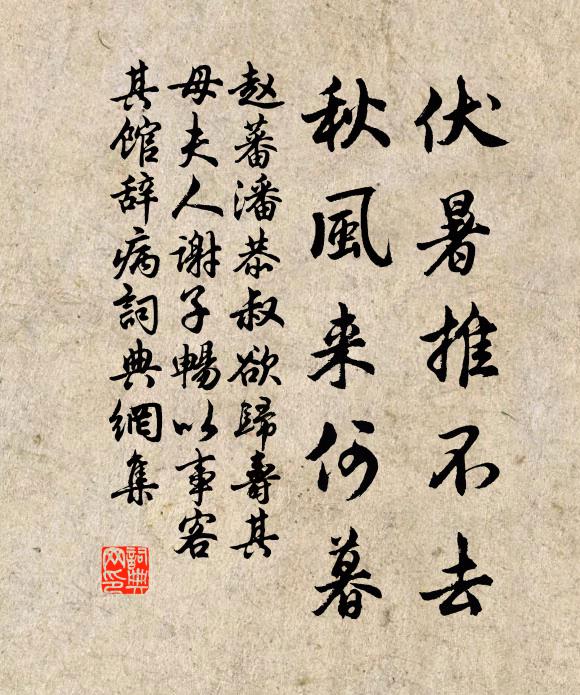 伏暑推不去
秋風来何暮
赵蕃潘恭叔欲歸壽其
母夫人谢子暢以事客
其馆辞病詞典網集
詞典网印